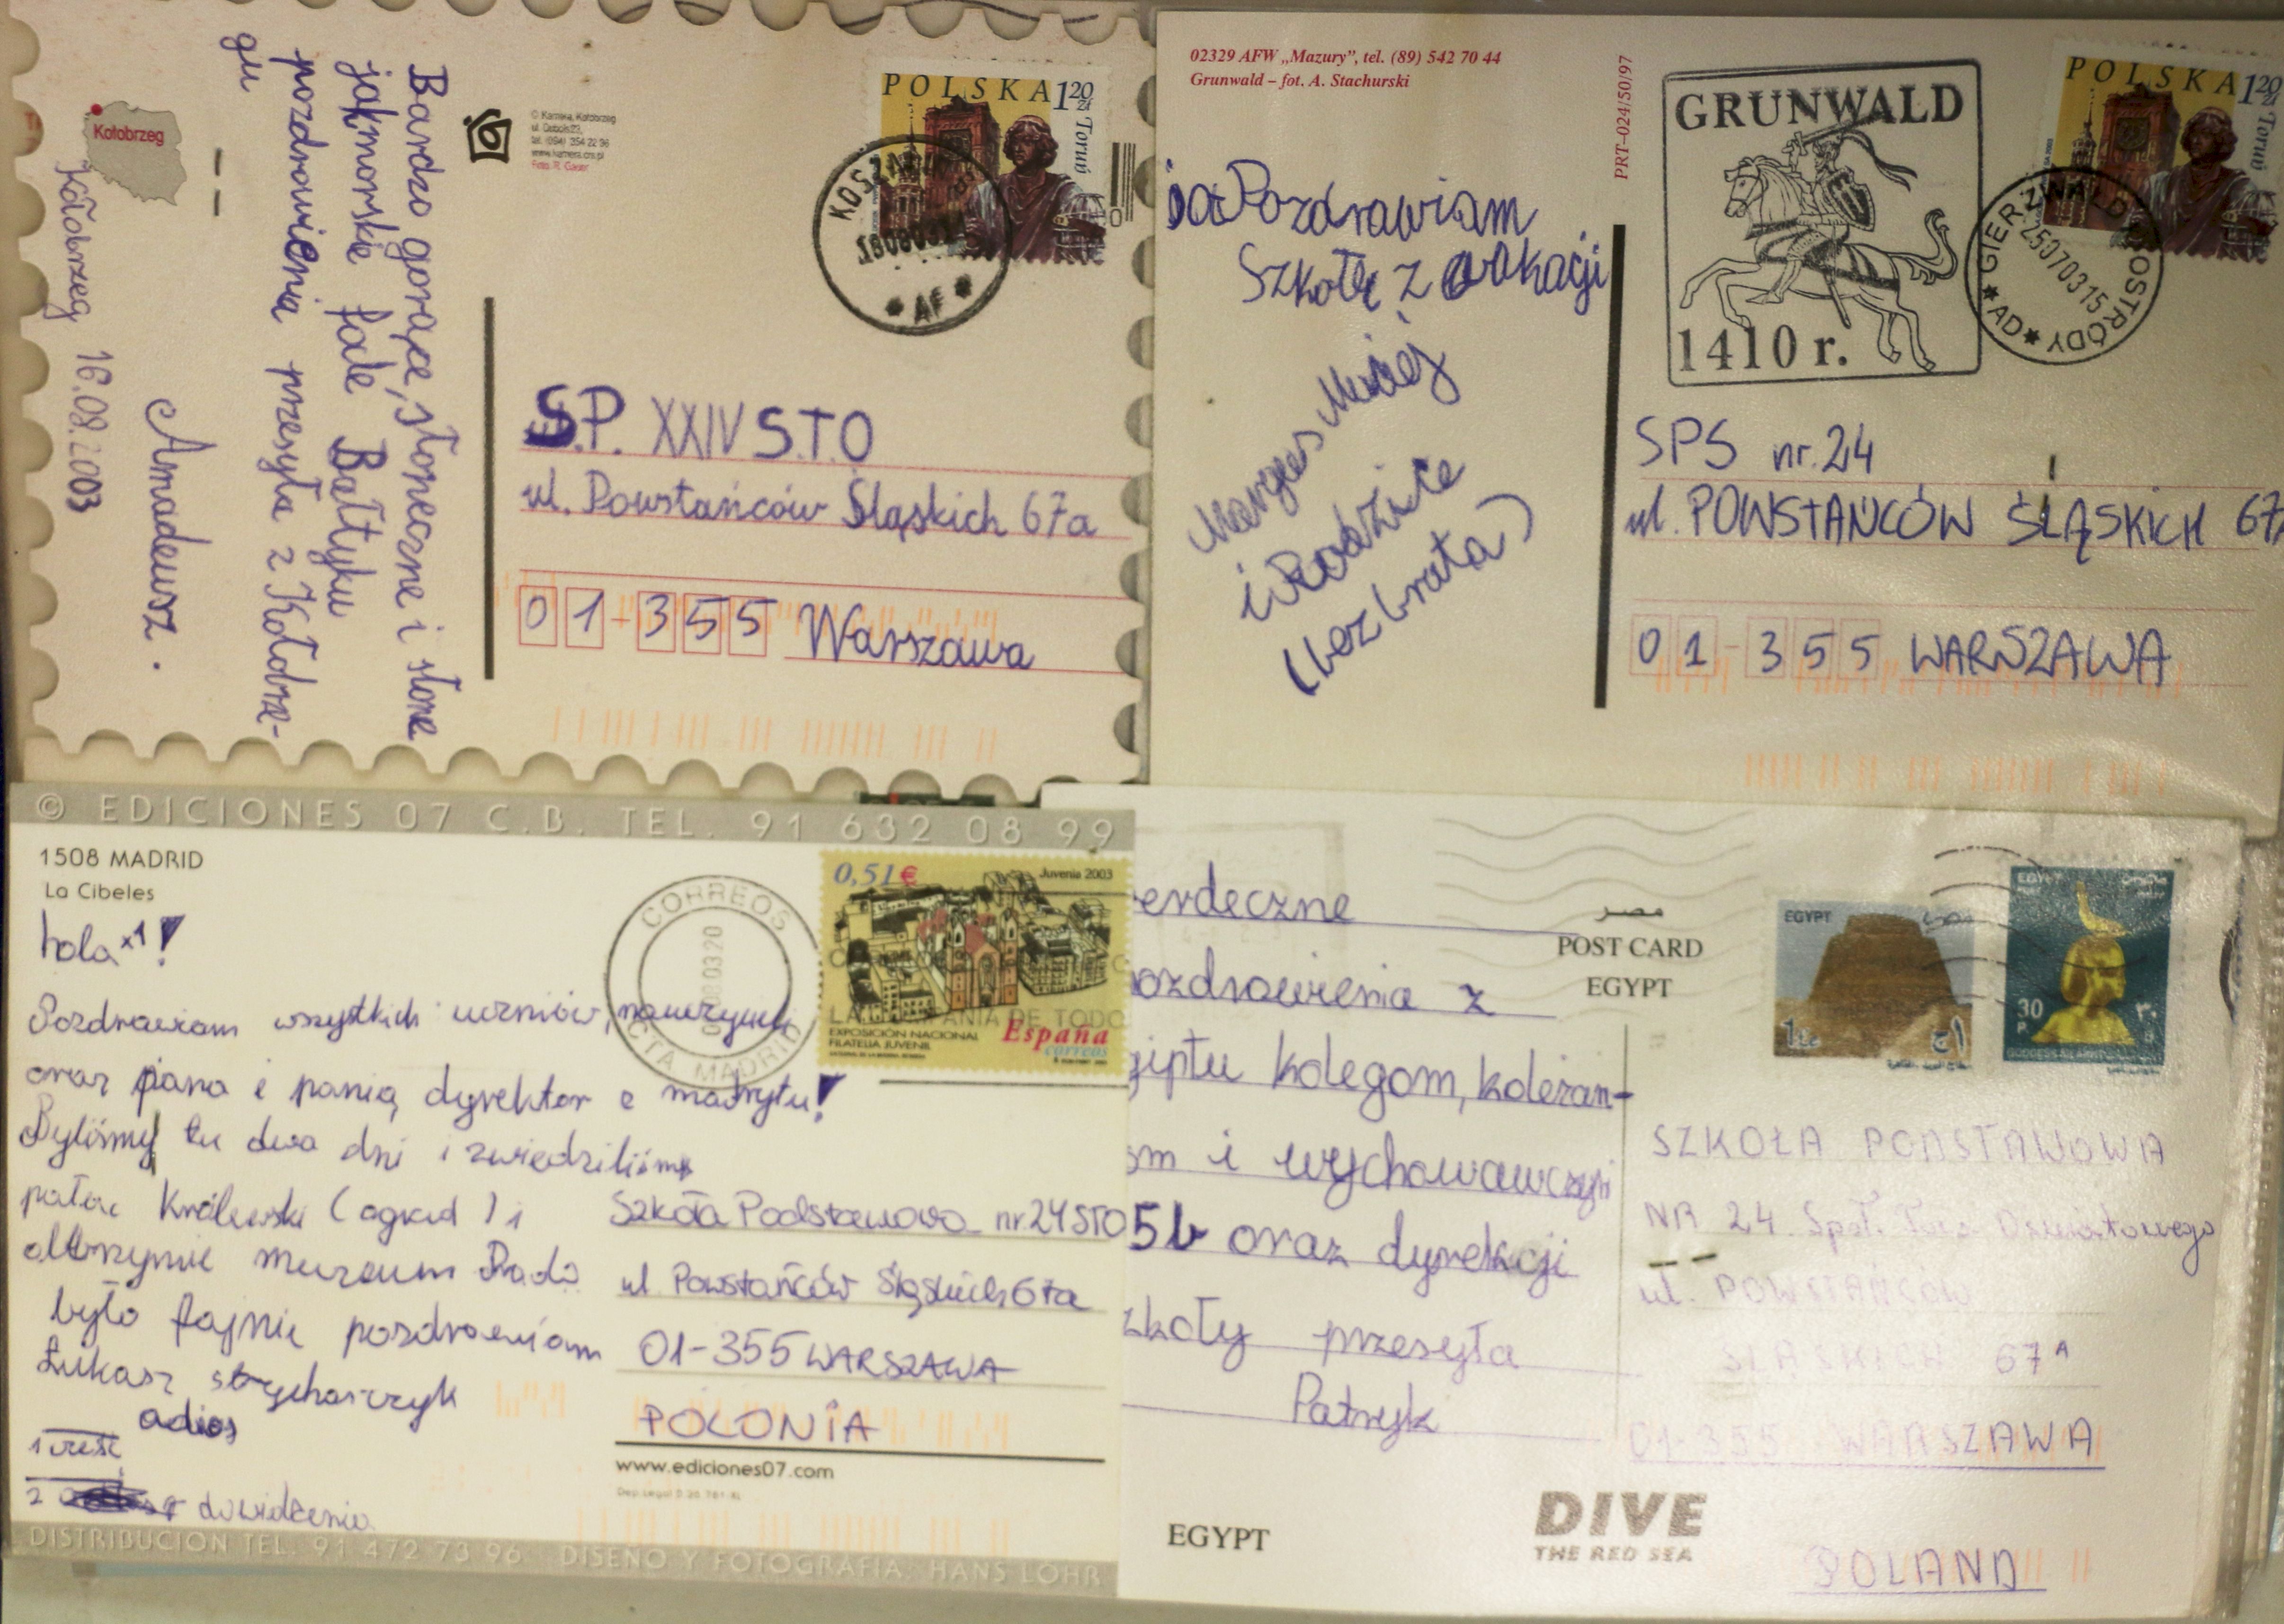 Kołobrzeg
Kołobrzeg 16.08.2003
Bardzo gorące, słoneczne i słone
jak morskie fale Bałtyku
pozdrowienia przesyła z Kołobrze-
gu
Amadeusz.
© Kamera, Kołobrzeg
www.kamera.cn.pl
POLSKA 1 20 zł
Toruń
* AF *
S.P. XXIV S.T.O
ul. Powstańców Śląskich 67a
01-355 Warszawa
02329 AFW „Mazury”, tel. (89) 542 70 44
Grunwald – fot. A. Stachurski
PRT-024/50/97
GRUNWALD
1410 r.
POLSKA 1 20 zł
Toruń
GIERZWAŁD K OSTRÓDY
25070315
* AD *
Pozdrawiam
Szkołę z wakacji
i Rodzice
(bez brata)
SPS nr. 24
ul. POWSTAŃCÓW ŚLĄSKICH 67
01-355 WARSZAWA
© EDICIONES 07 C.B. TEL. 91 632 08 99
1508 MADRID
La Cibeles
hola x1!
Pozdrawiam wszystkich uczniów,
oraz pana i panią dyrektor z madrytu!
Byliśmy tu dwa dni i zwiedziliśmy
pałac Królewski (ogród) i
olbrzymie muzeum Prado
było fajnie pozdrawiam
Łukasz strycharczyk
adios
1 cześć
2 dowidzenia
CORREOS
CTA MADRID
0,51€
Juvenia 2003
EXPOSICIÓN NACIONAL
FILATELIA JUVENIL
España
correos
Szkoła Podstawowa nr 24 STO
ul. Powstańców Śląskich 67a
01-355 WARSZAWA
POLONIA
www.ediciones07.com
DISTRIBUCION TEL. 91 472 73 96 DISEÑO Y FOTOGRAFIA: HANS LOHR
erdeczne
ozdrowienia z
giptu kolegom, koleżan-
om i wychowawczyni
5b oraz dyrekcji
zkoły przesyła
Patryk
مصر
POST CARD
EGYPT
EGYPT
EGYPT
30
P.
SZKOŁA PODSTAWOWA
NR 24 Społ. Tow. Oświatowego
ul. POWSTAŃCÓW
ŚLĄSKICH 67A
01-355 WARSZAWA
POLAND
EGYPT
DIVE
THE RED SEA